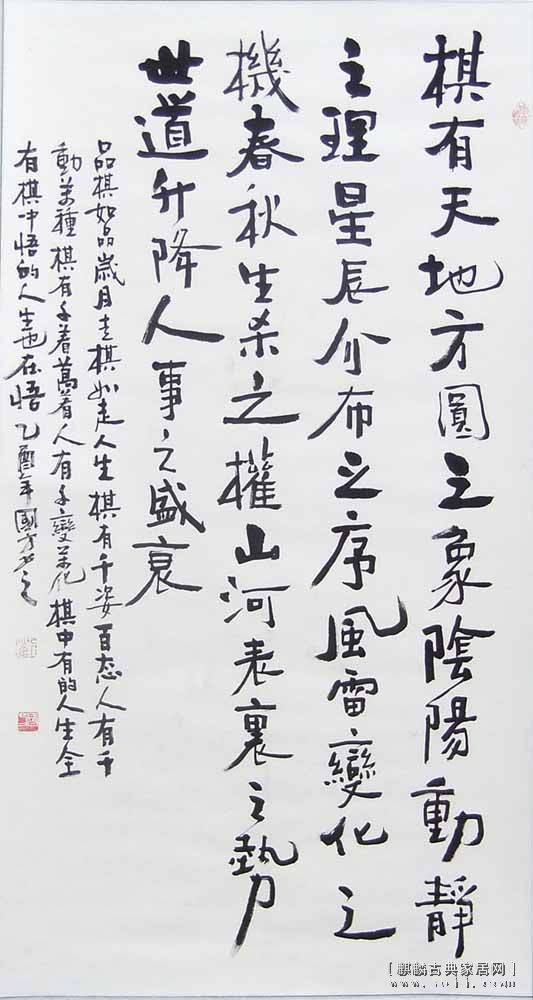 棋有天地方圓之象陰陽動靜
之理星辰分布之序風雷變化之
機春秋生杀之權山河表裏之勢
世道升降人事之盛衰
品棋如品歲月走棋如走人生棋有千姿百态人有千
動萬種棋有千着萬着人有千變萬化棋中有的人生全
有棋中悟的人生也在悟乙酉年國方
麒麟古典家居网